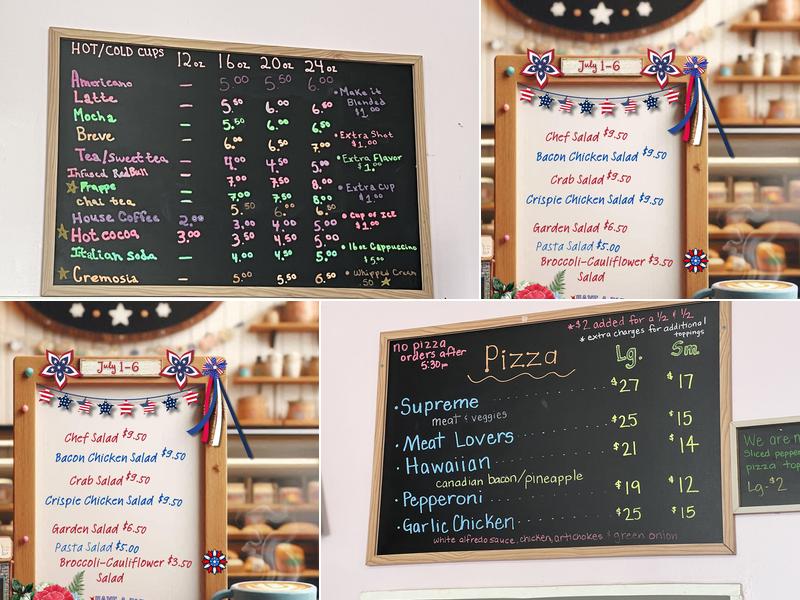 HOT/COLD CUPS 12oz 16oz 20oz 24oz
Americano — 5.00 5.50 6.00
Latte — 5.50 6.00 6.50
Mocha — 5.50 6.00 6.50
Breve — 6.00 6.50 7.00
Tea/sweet tea — 4.00 4.50 5.00
Infused RedBull — 7.00 7.50 8.00
Frappe — 7.00 7.50 8.00
chai tea — 5.50 6.00 6.50
House Coffee 2.00 3.00 4.00 5.00
Hot cocoa 3.00 3.50 4.50 5.00
Italian Soda — 4.00 4.50 5.00
Cremosia — 5.00 5.50 6.00
• Make it
Blended
$1.00
• Extra Shot
$1.00
• Extra Flavor
$1.00
• Extra Cup
$1.00
• Cup of Ice
$1.00
• 16oz Cappuccino
$5.00
• Whipped Cream
.50
July 1-6
Chef Salad $9.50
Bacon Chicken Salad $9.50
Crab Salad $9.50
Crispie Chicken Salad $9.50
Garden Salad $6.50
Pasta Salad $5.00
Broccoli-Cauliflower $3.50
Salad
July 1-6
Chef Salad $9.50
Bacon Chicken Salad $9.50
Crab Salad $9.50
Crispie Chicken Salad $9.50
Garden Salad $6.50
Pasta Salad $5.00
Broccoli-Cauliflower $3.50
Salad
no pizza
orders after
5:30pm
Pizza
*$2 added for a ½ & ½
* extra charges for additional
toppings
Lg. Sm
• Supreme $27 $17
meat & veggies
• Meat Lovers $25 $15
• Hawaiian $21 $14
canadian bacon/pineapple
• Pepperoni $19 $12
• Garlic Chicken $25 $15
white alfredo sauce, chicken, artichokes & green onion
We are
Sliced
pizza
Lg-$2